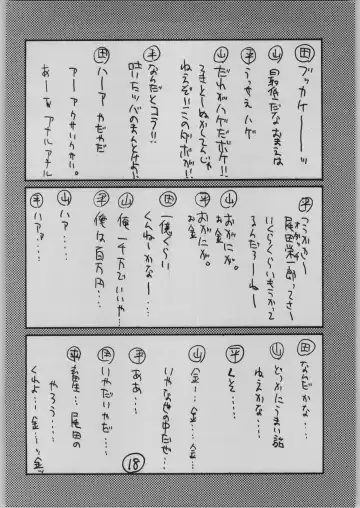 田 ブッカケーーッ
山 最低だなおまえは
平 うっせえハゲ
山 だれがハゲだボケ!!
てきとーぬかしてんじゃ
ねえぞ!!このダボが!!
平 なんだとコラ!!
吐いたツバのまんとけよ!!
田 ハーアやだやだ
アーアクサイクサイ。
あーあアナルアナル
平 つうかさー
尾田栄一郎ってさー
いくらくらいもうかって
るんだろーねー
山 おがにが。
お金
平 おがにが。
お金
田 一億くらい
くんねーかなー…
山 俺一千万でいいや…
平 俺は百万円…
山 ハア……
平 ハア…
田 なんだかな…
山 どっかにうまい話
ねえかな…
平 くそ…
山 金…金…金…
田 いやなせの中だぜ…
平 ああ…
田 いやだいやだ…
平 畜生…尾田の
やろう……
くれよ…金…
18